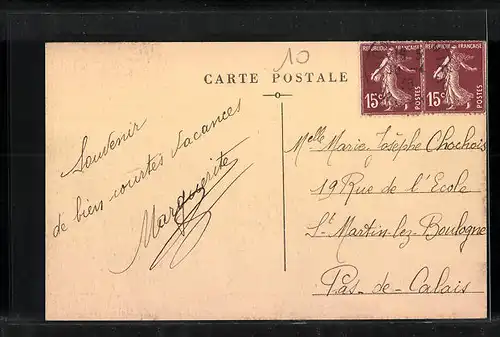 10
CARTE POSTALE
REPUBLIQUE FRANÇAISE
15c POSTES
REPUBLIQUE FRANÇAISE
15c POSTES
Souvenir
de bien courtes vacances
Marguerite
Melle Marie Josèphe Chochois
19 Rue de l'Ecole
St Martin-lez-Boulogne
Pas-de-Calais